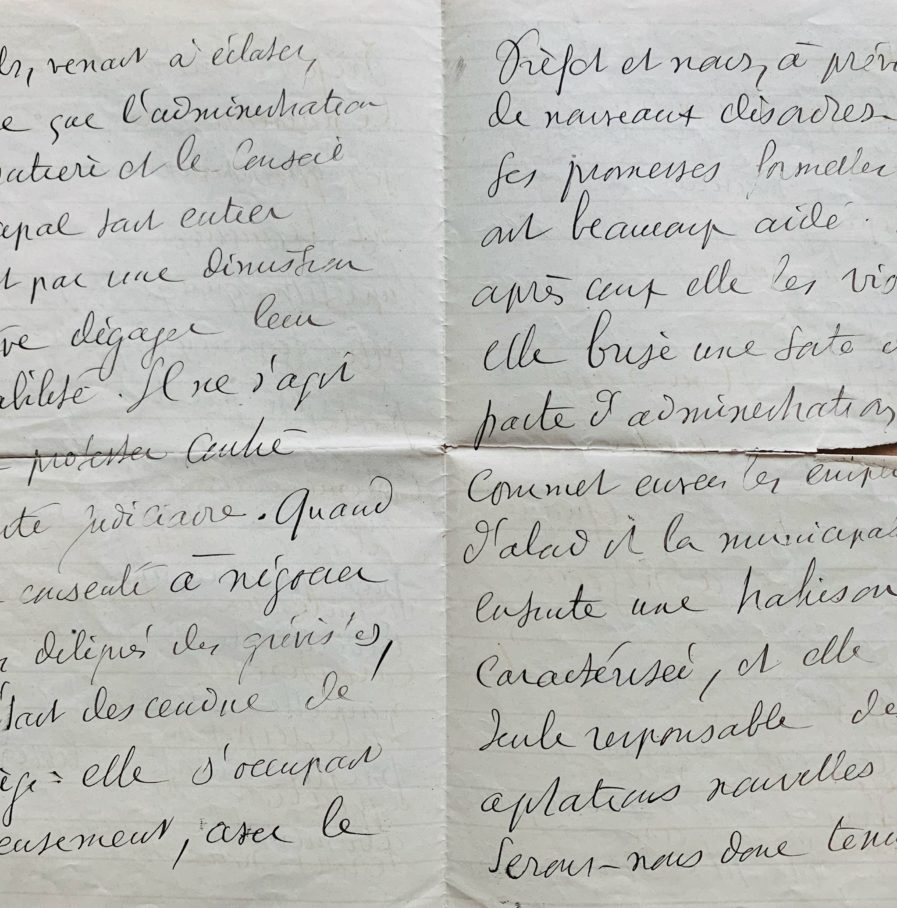 venait à éclater,
que l'administration
et le Conseil
tout entier
par une démission
dégager leur
. Il ne s'agit
protester contre
judiciaire. Quand
consenti à négocier
délégués des grévistes,
était descendue de
elle s'occupait
eusement, avec le
Préfet et nous, à préve
de nouveaux désordres.
Ses promesses formelles
ont beaucoup aidé.
après coup elle les vio
elle brise une sorte
pacte d'administration
commet envers les
d'abord et la municipal
ensuite une trahison
caractérisée, et elle
seule responsable des
agitations nouvelles
Serons-nous donc tenu